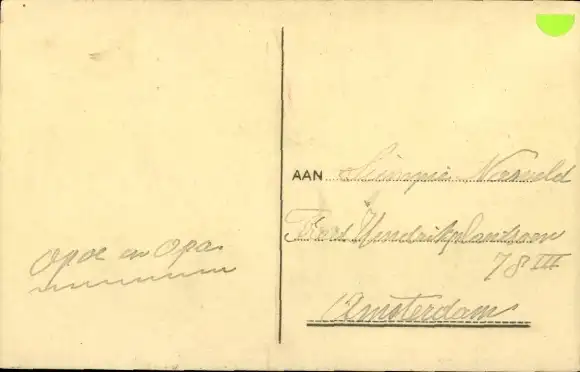 Opoe en Opa.
AAN Siempie
Prins Hendrikplantsoen
78 III
Amsterdam